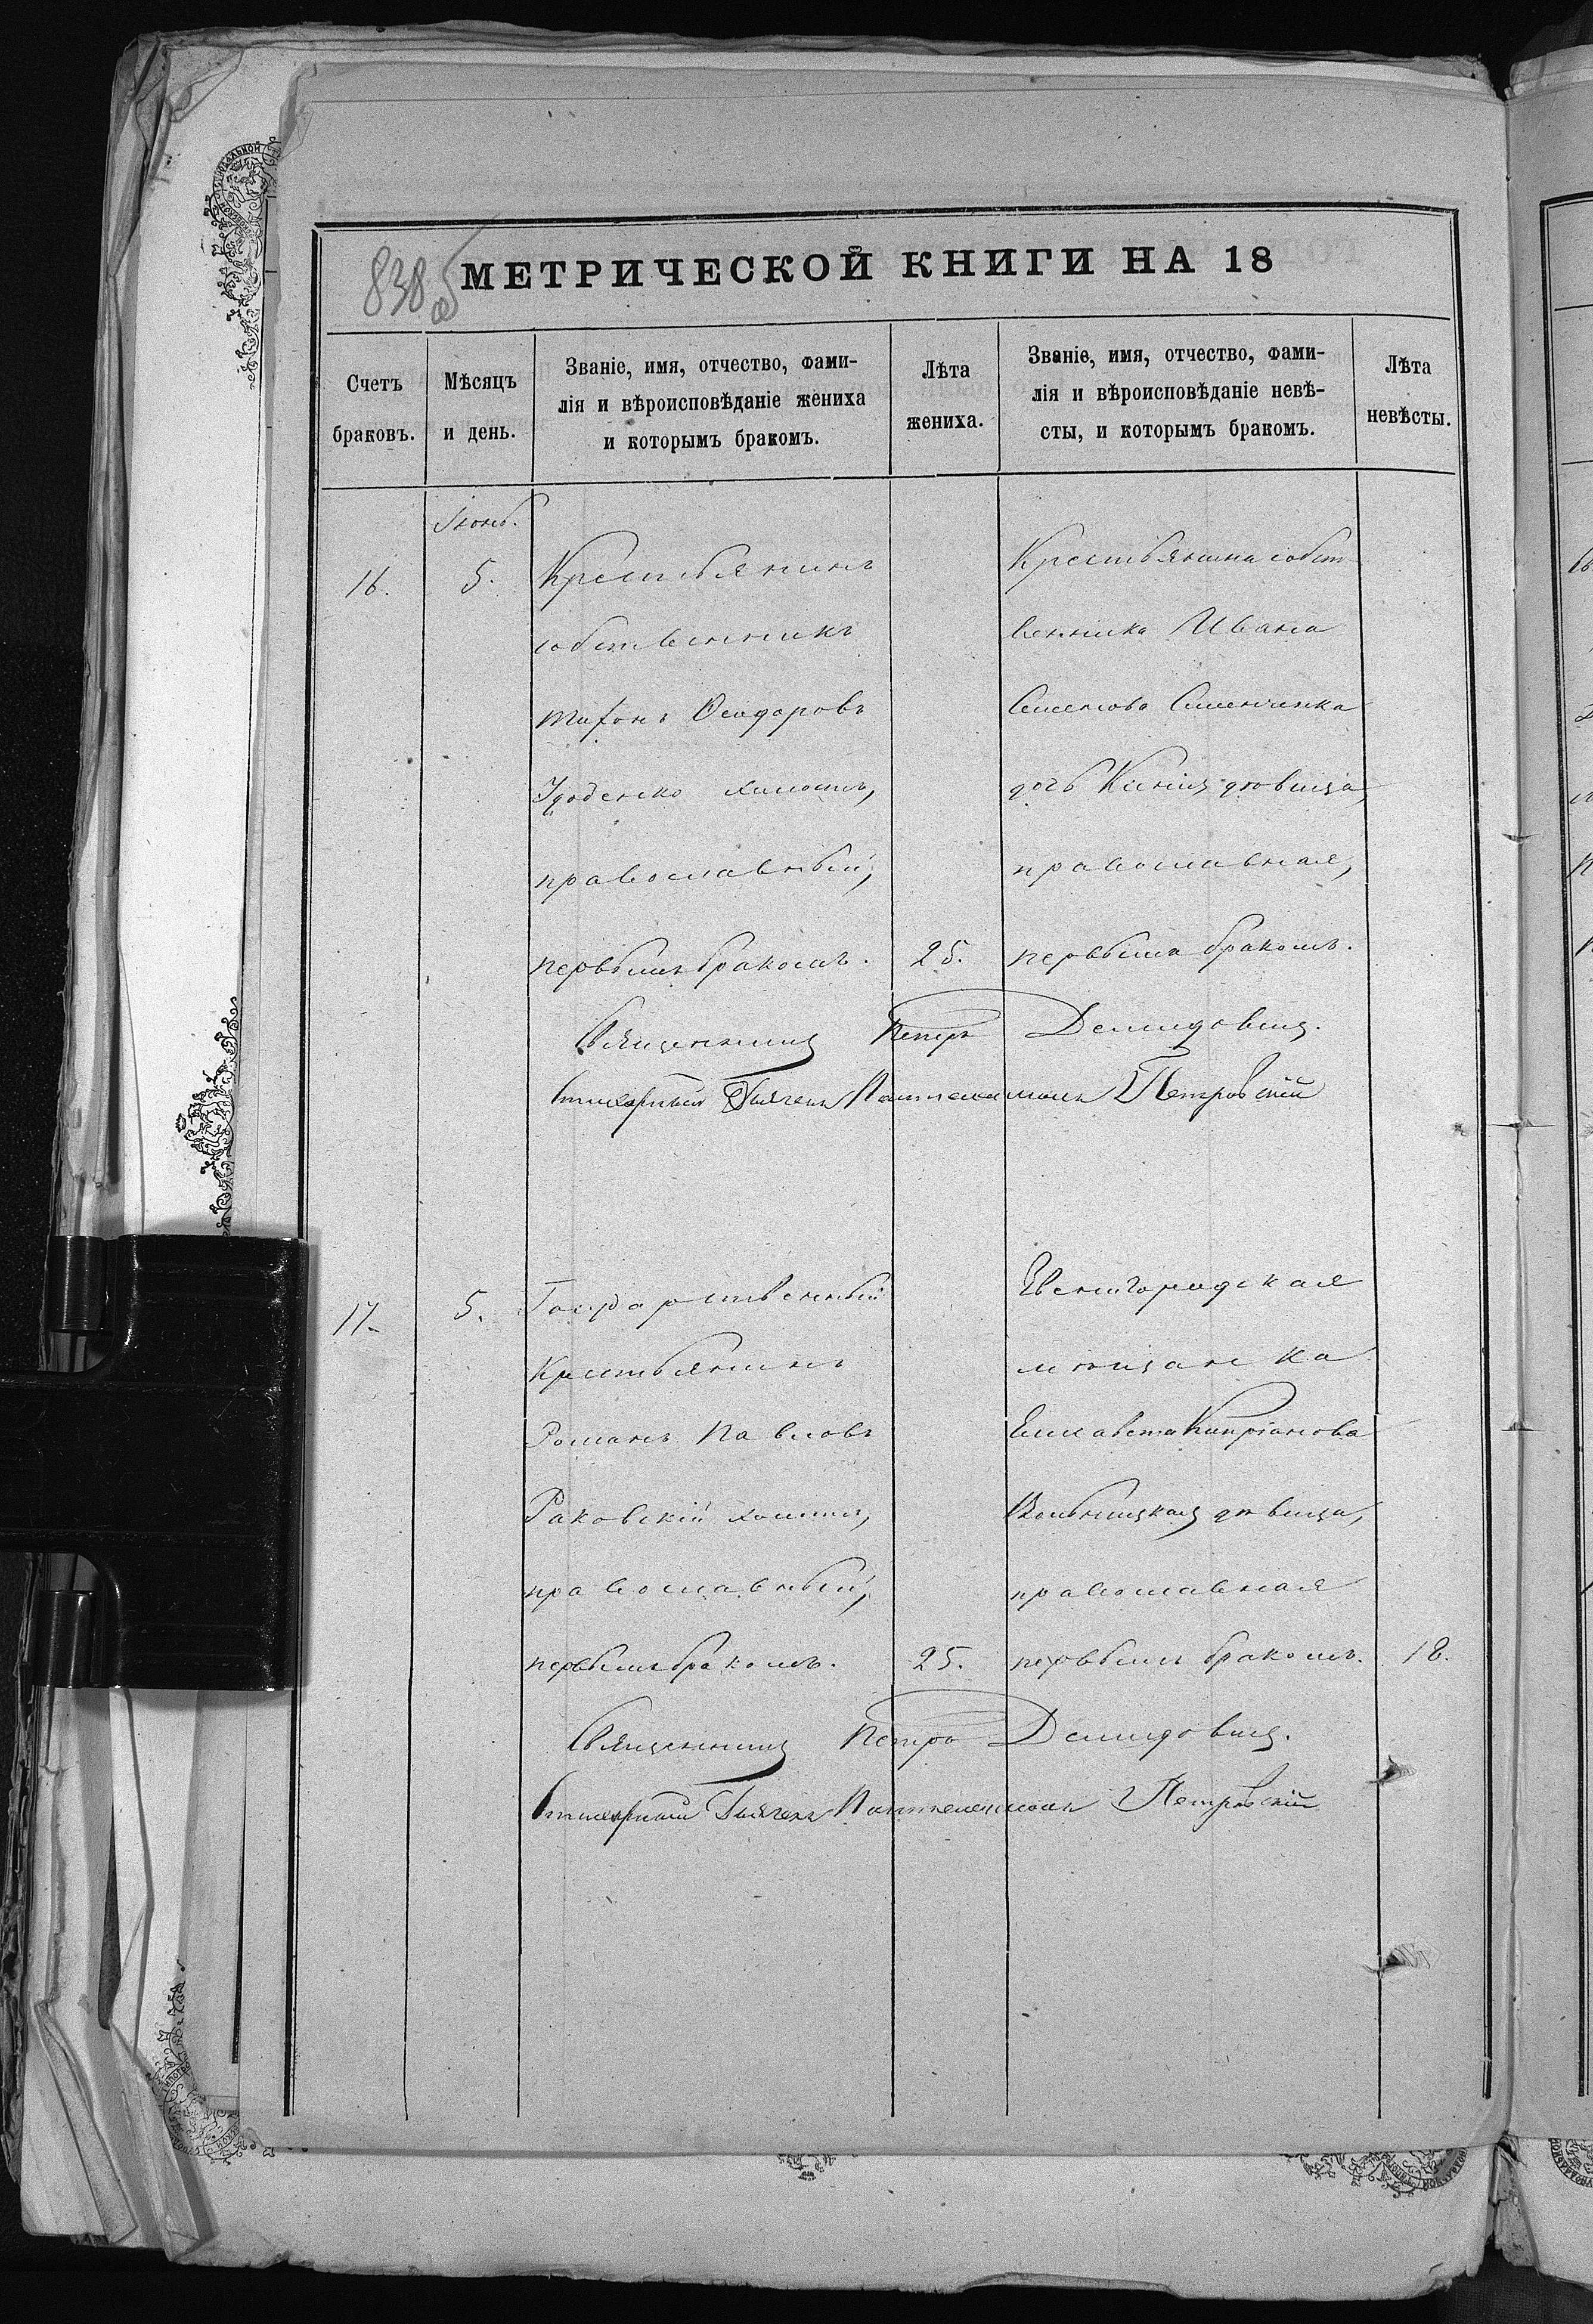 838 об
МЕТРИЧЕСКОЙ КНИГИ НА 18
Счетъ браковъ.
Мѣсяцъ и день.
Званіе, имя, отчество, фами-
лія и вѣроисповѣданіе жениха
и которымъ бракомъ.
Лѣта жениха.
Званіе, имя, отчество, фами-
лія и вѣроисповѣданіе невѣ-
сты, и которымъ бракомъ.
Лѣта невѣсты.
16.
Іюнь.
5.
Крестьянинъ
собственникъ
Тихонъ Ѳеодоровъ
холостъ,
православный,
первымъ бракомъ.
25.
Крестьянина собст
венника Ивана
Семенова
дочь дѣвица,
православная,
первымъ бракомъ.
Священникъ Петръ Демидовичъ.
Стихарный Дьячекъ Пантелеимонъ Петровскій
17.
5.
Государственный
Крестьянинъ
Романъ Павловъ
Раковскій холостъ,
православный,
первымъ бракомъ.
25.
Звенигородская
мѣщанка
Елисавета Кипріанова
дѣвица,
православная
первымъ бракомъ.
18.
Священникъ Петръ Демидовичъ.
Стихарный Дьячекъ Пантелеимонъ Петровскій